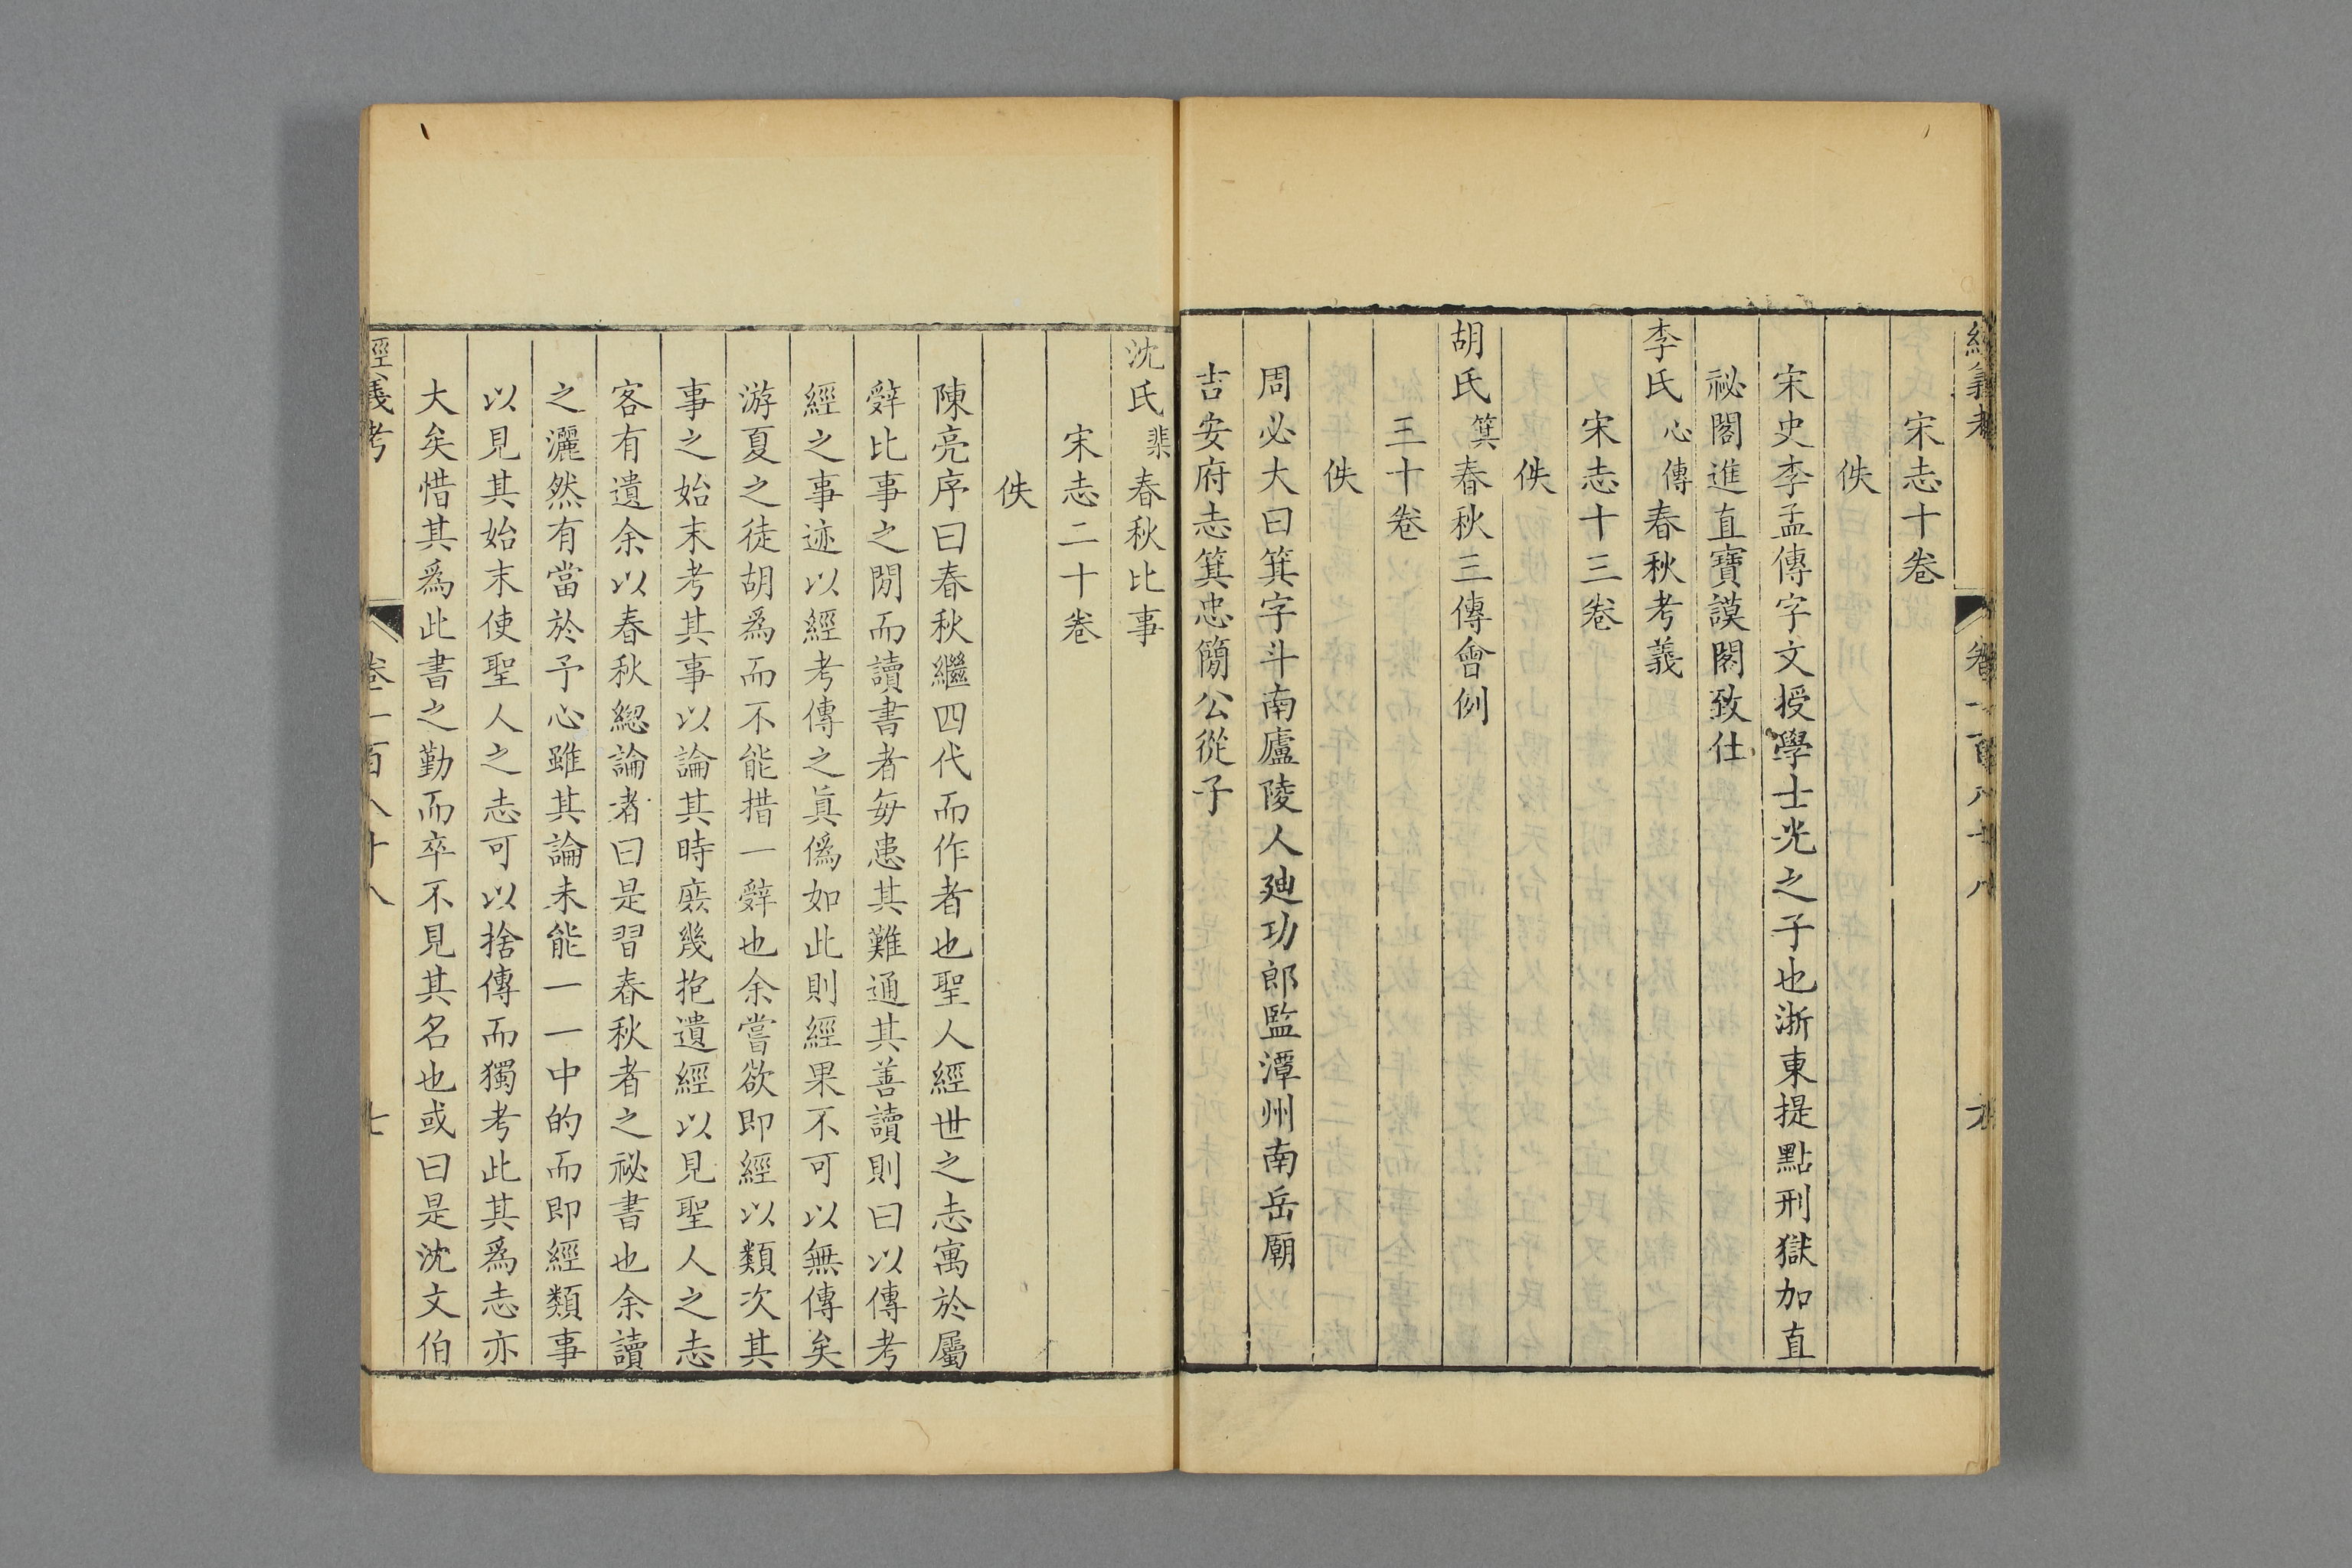 經義考 卷一百八十八
宋志十卷
佚
宋史李孟傳字文授學士光之子也浙東提點刑獄加直
祕閣進直寶謨閣致仕
李氏心傳春秋考義
宋志十三卷
佚
胡氏箕春秋三傳會例
三十卷
佚
周必大曰箕字斗南廬陵人廸功郎監潭州南岳廟
吉安府志箕忠簡公從子
沈氏棐春秋比事
宋志二十卷
佚
陳亮序曰春秋繼四代而作者也聖人經世之志寓於屬
辭比事之閒而讀書者每患其難通其善讀則曰以傳考
經之事迹以經考傳之眞僞如此則經果不可以無傳矣
游夏之徒胡爲而不能措一辭也余嘗欲即經以類次其
事之始末考其事以論其時庻幾抱遺經以見聖人之志
客有遺余以春秋緫論者曰是習春秋者之祕書也余讀
之灑然有當於予心雖其論未能一一中的而即經類事
以見其始末使聖人之志可以捨傳而獨考此其爲志亦
大矣惜其爲此書之勤而卒不見其名也或曰是沈文伯
經義考 卷一百八十八 七